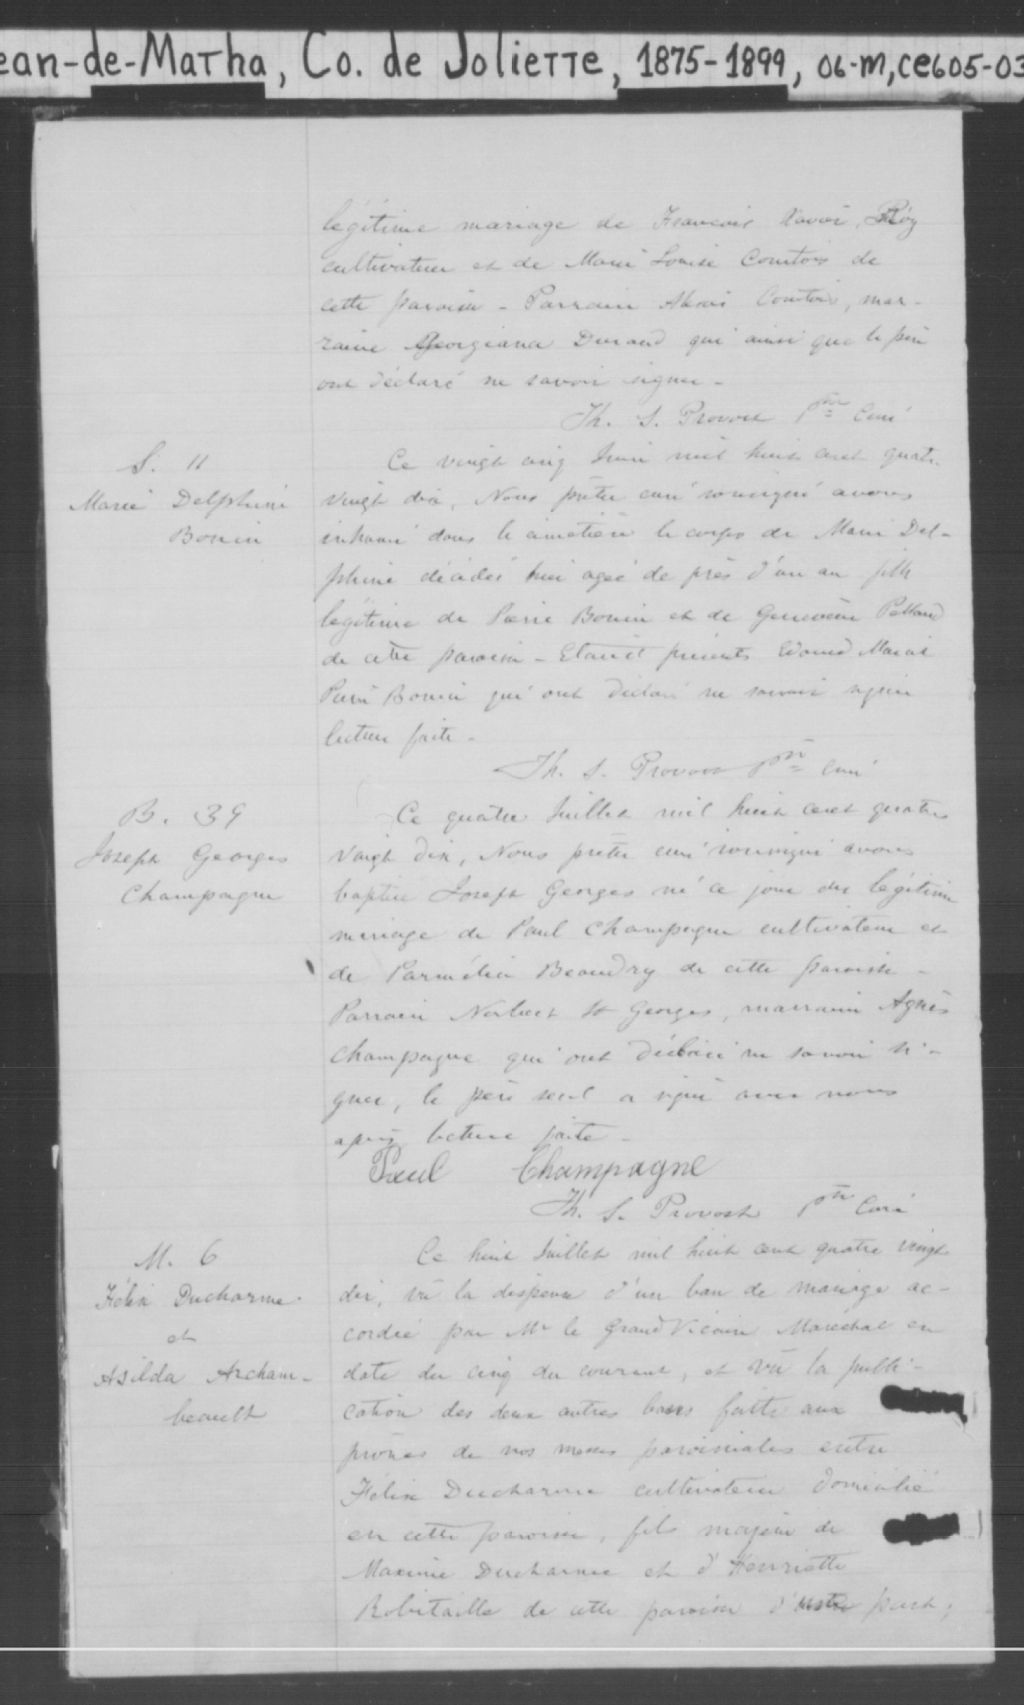 ean-de-Matha, Co. de Joliette, 1875-1899, 06-M, CE605-03
légitime mariage de François Xavier Roy
cultivateur et de Marie Louise Comtois de
cette paroisse - Parrain Comtois, mar-
raine Georgiana Durand qui ainsi que le père
ont déclaré ne savoir signer -
Th. S. Provost Ptre Curé
S. 11
Marie Delphine
Bonin
Ce vingt cinq Juin mil huit cent quatre
vingt dix, Nous prêtre curé soussigné avons
inhumé dans le cimetière le corps de Marie Del-
phine décédée agée de près d'un an fille
légitime de Pierre Bonin et de Geneviève Pelland
de cette paroisse - Etaient présents Edouard
Pierre Bonin qui ont déclaré ne savoir signer
lecture faite -
Th. S. Provost Ptre Curé
B. 39
Joseph Georges
Champagne
Ce quatre Juillet mil huit cent quatre
vingt dix, Nous prêtre curé soussigné avons
baptisé Joseph Georges né ce jour du légitime
mariage de Paul Champagne cultivateur et
de Parmélia Beaudry de cette paroisse -
Parrain Norbert St Georges, marraine Agnès
Champagne qui ont déclaré ne savoir si-
gner, le père seul a signé avec nous
après lecture faite -
Paul Champagne
Th. S. Provost Ptre Curé
M. 6
Félix Ducharme
et
Asilda Archam-
beault
Ce huit Juillet mil huit cent quatre vingt
dix, vu la dispense d'un ban de mariage ac-
cordée par Mr le Grand Vicaire Maréchal en
date du cinq du courant, et vu la publi-
cation des deux autres bans faite aux
prônes de nos messes paroissiales entre
Félix Ducharme cultivateur domicilié
en cette paroisse, fils majeur de
Maxime Ducharme et d'Henriette
Robitaille de cette paroisse d'une part;